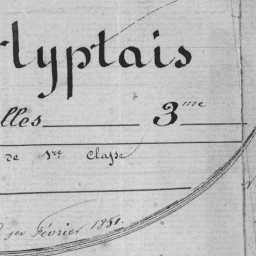 lyptais
lles 3me
de 1re Classe
1er Février 1881